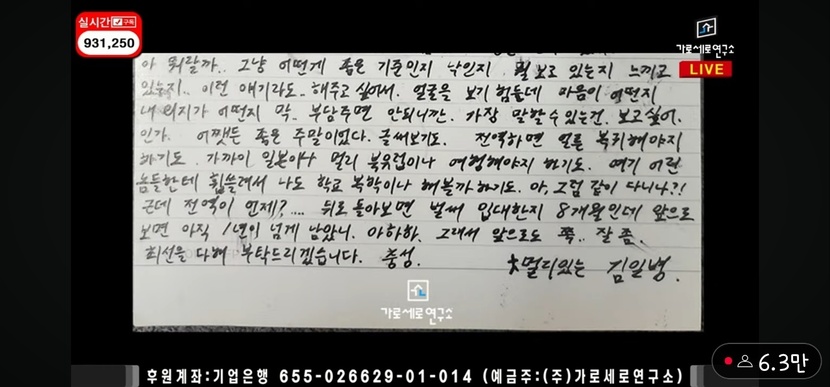 실시간 구독
931,250
가로세로연구소
LIVE
아 뭐랄까.. 그냥 어떤게 좋은 기준인지 낙인지 뭘 보고 있는지 느끼고
있는지.. 이런 얘기라도.. 해주고 싶어서. 얼굴을 보기 힘들데 마음이 어떤지
내 의지가 어떤지 막.. 부담주면 안되니깐. 가장 말할 수 있는건. 보고싶어.
인가. 어쨋든 좋은 주말이었다. 글써보기도. 전역하면 얼른 복귀해야지
하기도. 가까이 일본이나 멀리 북유럽이나 여행해야지 하기도. 여기 어린
놈들한테 휩쓸래서 나도 학교 복학이나 해볼까 하기도. 아, 그럼 같이 다니나?!
근데 전역이 언제?.... 뒤로 돌아보면 벌써 입대한지 8개월인데 앞으로
보면 아직 1년이 넘게 남았니. 아하하. 그래서 앞으로도 쭉.. 잘 좀.
최선을 다해 부탁드리겠습니다. 충성.
멀리있는 김일병.
가로세로연구소
6.3만
후원계좌:기업은행 655-026629-01-014 (예금주:(주)가로세로연구소)